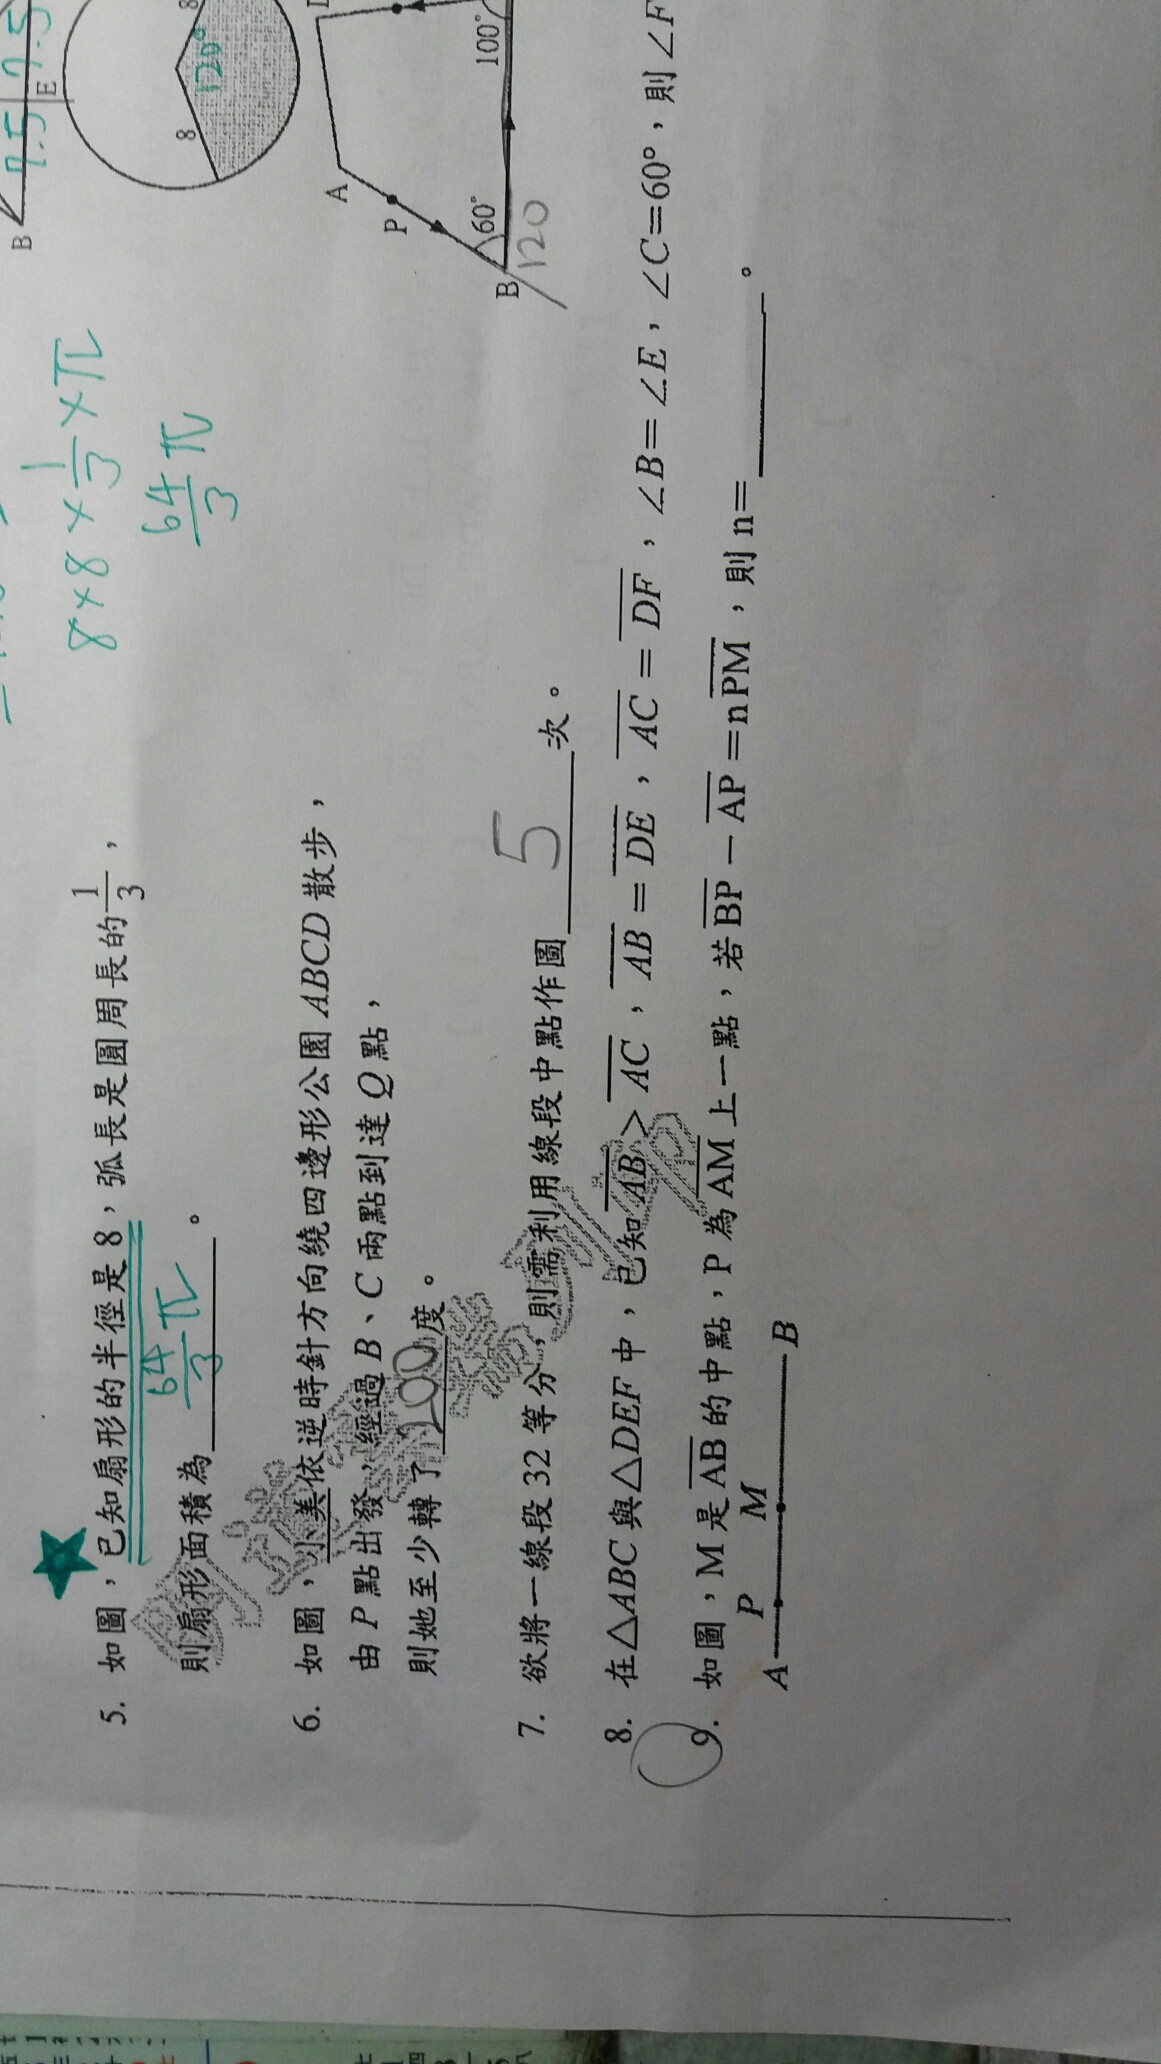 B 7.5 7.5
E
8 8
120°
8×8×1/3×π
64/3 π
5. 如圖，已知扇形的半徑是 8，弧長是圓周長的 1/3，
則扇形面積為 64/3 π 。
6. 如圖，小美依逆時針方向繞四邊形公園 ABCD 散步，
由 P 點出發，經過 B、C 兩點到達 Q 點，
則她至少轉了 200 度。
A
P
B 60° 100°
120
7. 欲將一線段 32 等分，則需利用線段中點作圖 5 次。
8. 在△ABC 與△DEF 中，已知 AB > AC，AB = DE，AC = DF，∠B=∠E，∠C=60°，則∠F
9. 如圖，M 是 AB 的中點，P 為 AM 上一點，若 BP − AP = nPM，則 n= 。
A P M B